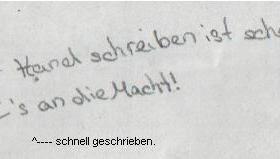 Hand schreiben ist
's an die Macht!
^---- schnell geschrieben.